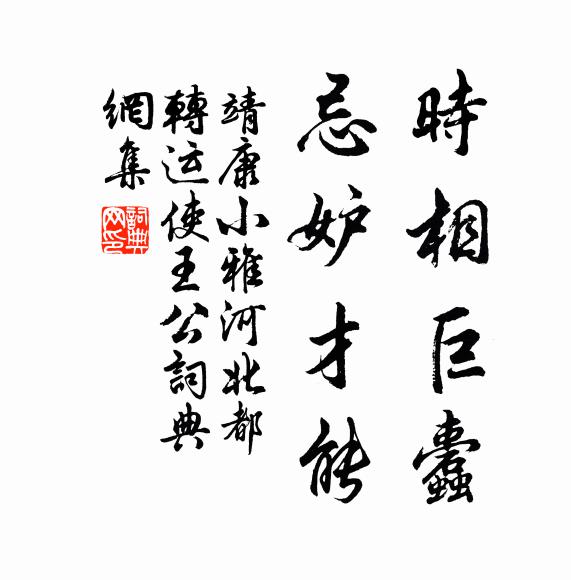 時相巨蠹
忌妒才能
靖康小雅河北都
轉运使王公詞典
網集
詞典
网印